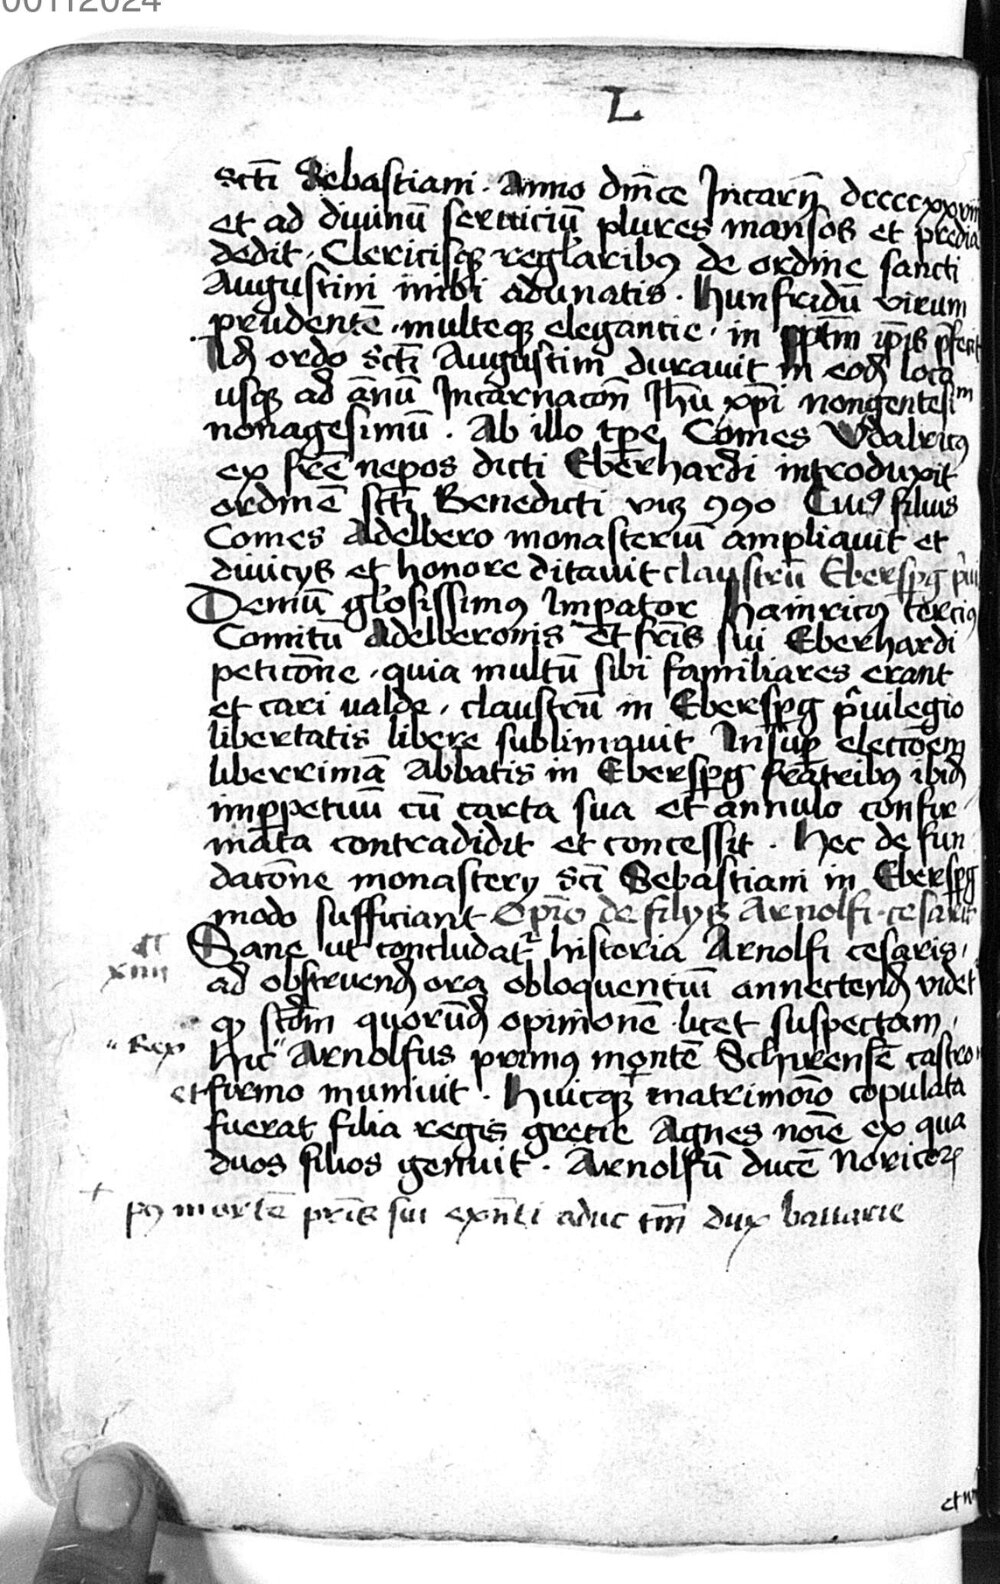 00112024
L
scti Sebastiani . Anno dm̄ce Incarn̄ dccccxxviii
et ad diuinū seruiciū plures mansos et predia
dedit . Clericisqꝫ regl̄aribꝰ de ordine sancti
Augustini inibi adunatis . Hunfridū virum
prudentē . multeqꝫ elegancie . in ip̄is
ordo sc̄ti Augustini durauit in eod̄ loco
usqꝫ ad ānū Incarnacōn Jh̄u xp̄i nongentesim
nonagesimū . Ab illo tp̄e Comes Vdalricꝰ
ex fr̄e nepos dicti Eberhardi introduxit
ordinē sc̄ti Benedicti viꝫ 990 Cuiꝰ filius
Comes Adelbero monasteriū ampliauit et
diuicijs et honore ditauit claustrū Ebersꝑg
Demū gl̓osissimꝰ Imꝑator Hainricꝰ tercius
Comitū Adelberonis et fr̄is sui Eberhardi
peticōne . quia multū sibi familiares erant
et cari valde . claustrū in Ebersꝑg p̓uilegio
libertatis libere sublimauit Insuꝑ elecc̄oem
liberrimā Abbatis in Ebersꝑg fratribꝰ ibid̄
imꝑpetuū cū carta sua et annulo confir
mata contradidit et concessit . Hec de fun
dacōne monasterij sc̄i Sebastiani in Ebersꝑg
modo sufficiant Op̄io de filijs Arnolfi cesaris
¶ Sane ut concludat᷑ historia Arnolfi cesaris .
xiiii ad obstruend̄ ora obloquentiū annectend̄ videt᷑
ꝙ scd̄m quorūd̄ opinionē licet suspectam .
" Rex hic " Arnolfus primꝰ montē Schirensē castro
et firmo muniuit . Huicqꝫ matrimōio copulata
fuerat filia regis grecie Agnes nōie ex qua
duos filios genuit . Arnolfū ducē Noricoꝝ
+ pꝰ mortē pr̄is sui exn̄ti aduc tm̄ dux bauarie